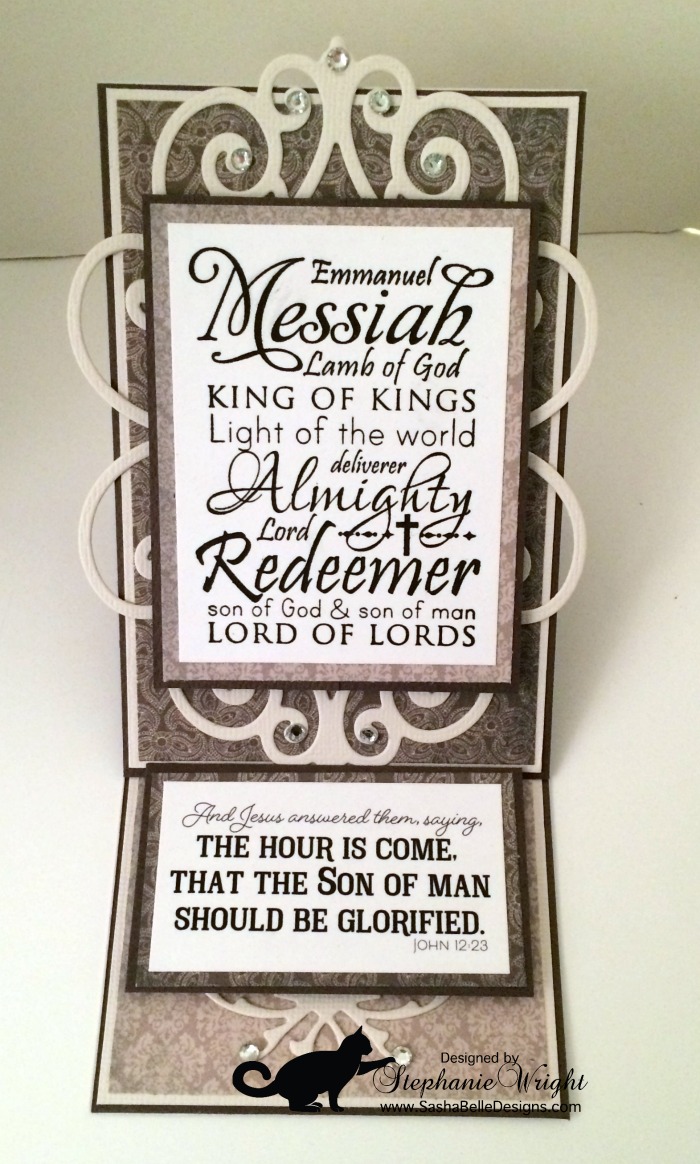 Emmanuel
Messiah
Lamb of God
KING OF KINGS
Light of the world
deliverer
Almighty
Lord
Redeemer
son of God & son of man
LORD OF LORDS
And Jesus answered them, saying,
THE HOUR IS COME,
THAT THE SON OF MAN
SHOULD BE GLORIFIED.
JOHN 12:23
Designed by
Stephanie Wright
www.SashaBelleDesigns.com